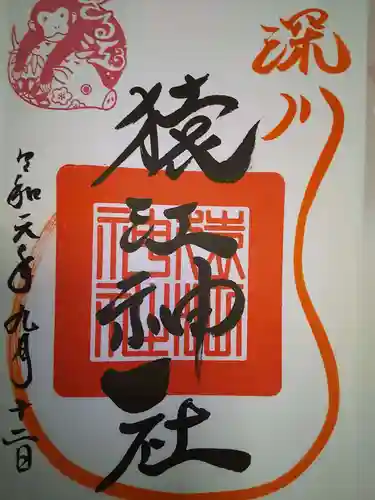 深川
猿江神社
令和元年九月十二日
さるえ